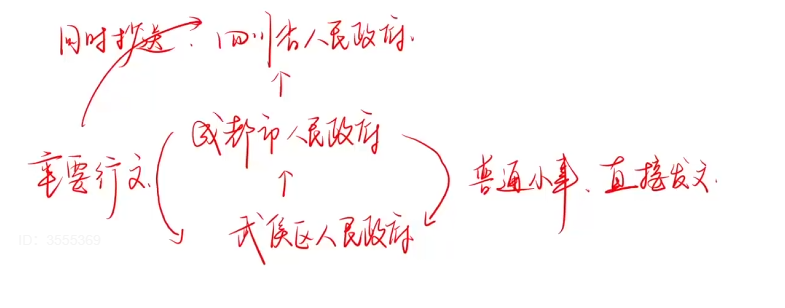 同时抄送：四川省人民政府.
↑
成都市人民政府
重要行文.
↑
普通小事、直接发文.
武侯区人民政府.
ID：3555369